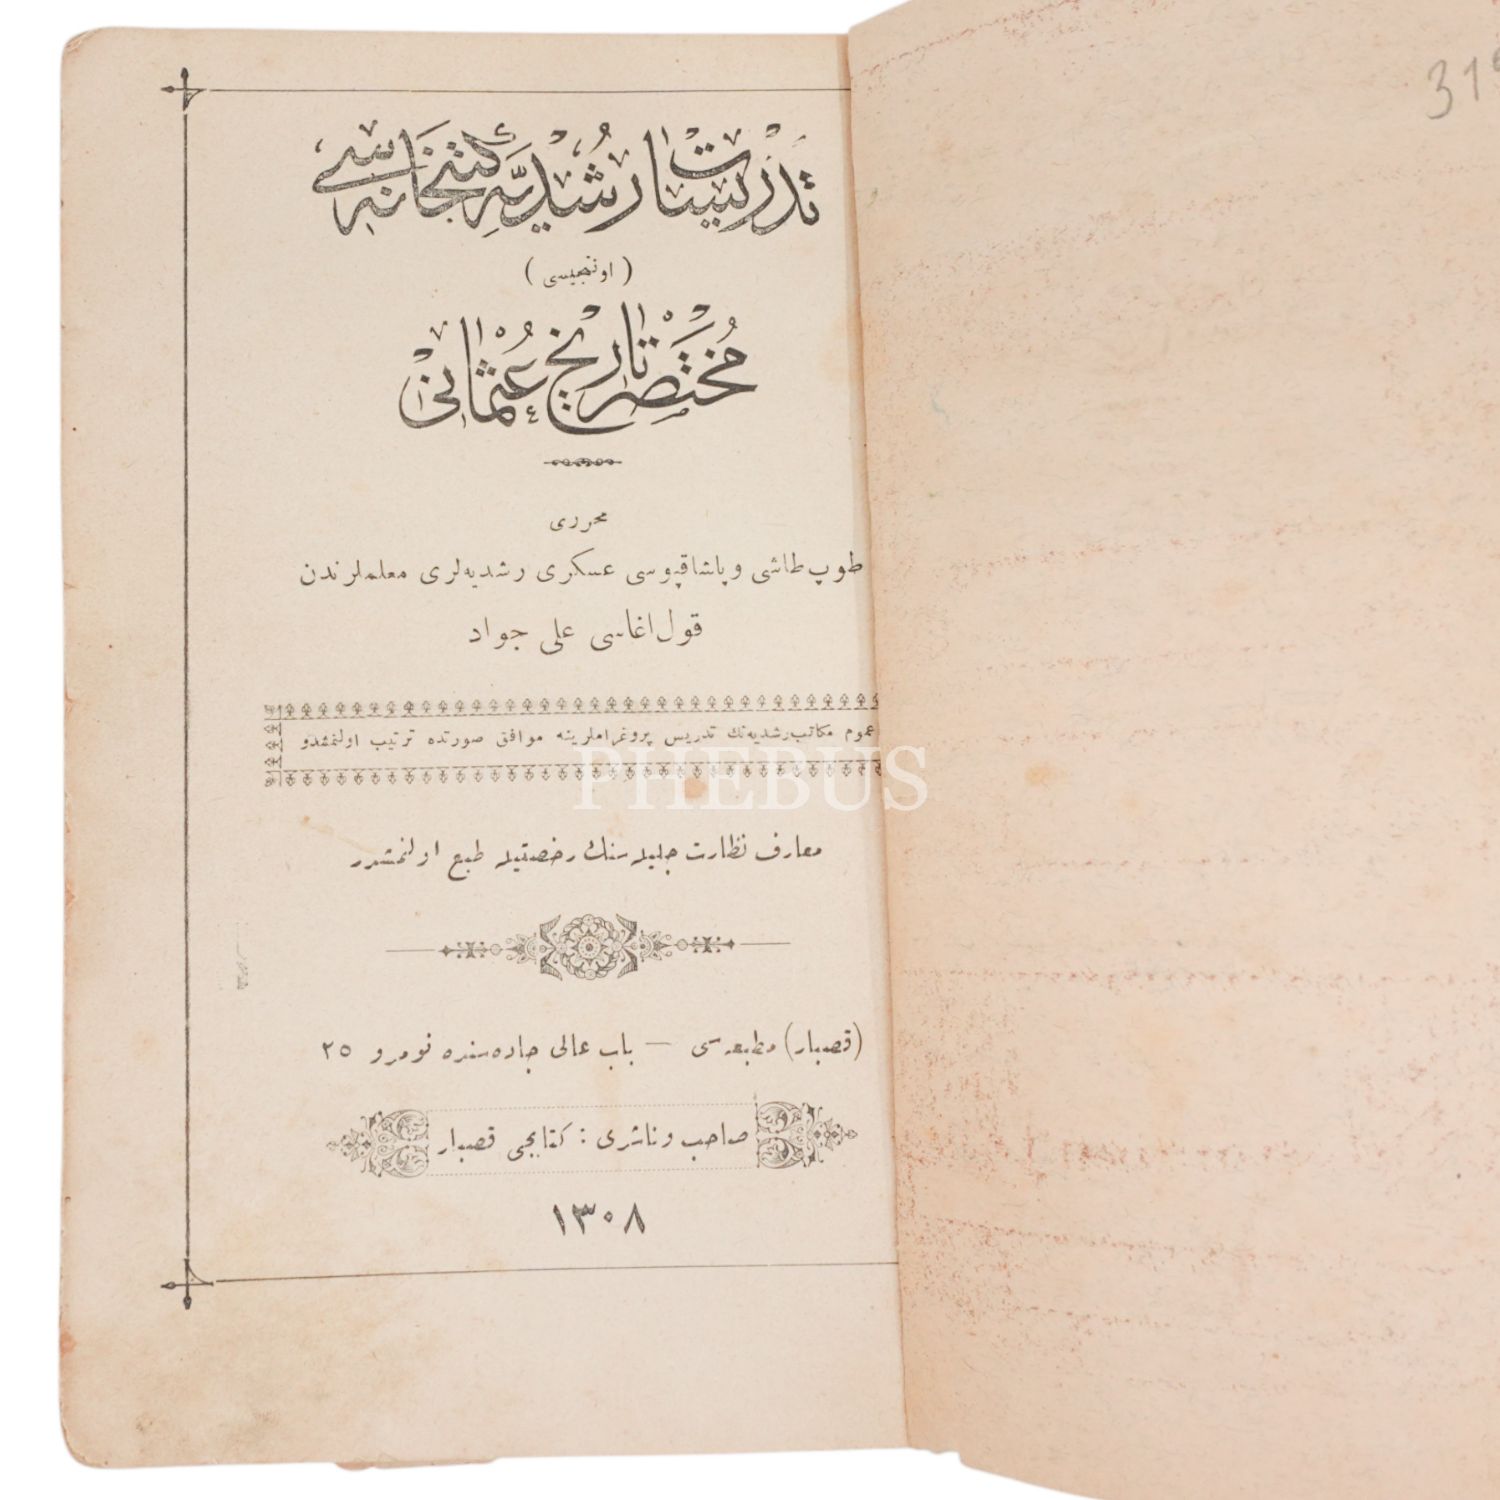 319
تدريسات رشديه كتبخانه‌سی
( اوننجیسی )
مُختَصر تاريخ عُثمانی
محرری
طوپ طاشی و پاشا قپوسی عسکری رشدیه‌لری معلملرندن
قول اغاسی علی جواد
عموم مکاتب رشدیه‌نك تدریس پروغراملرینه موافق صورتده ترتیب اولنمشدر
PHEBUS
معارف نظارت جلیله‌سنك رخصتیله طبع اولنمشدر
(قصبار) مطبعه‌سی — باب عالی جاده‌سنده نومرو ۲۵
صاحب و ناشری : کتابجی قصبار
۱۳۰۸